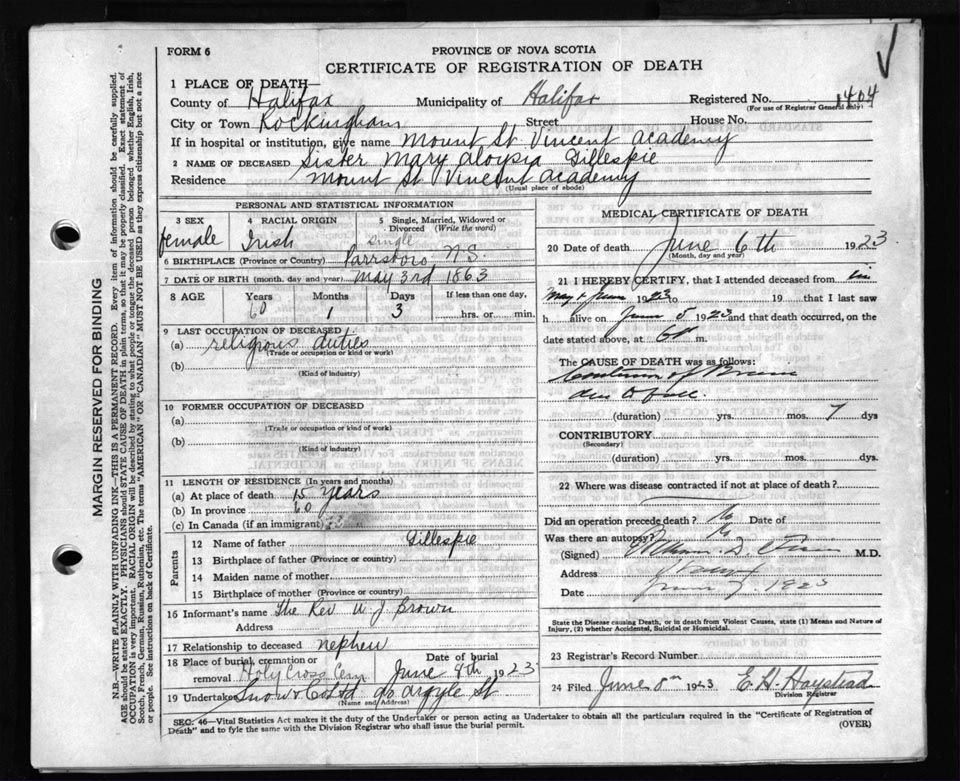 FORM 6
PROVINCE OF NOVA SCOTIA
CERTIFICATE OF REGISTRATION OF DEATH
MARGIN RESERVED FOR BINDING
N.B.—WRITE PLAINLY WITH UNFADING INK—THIS IS A PERMANENT RECORD. Every item of information should be carefully supplied.
AGE should be stated EXACTLY. PHYSICIANS should STATE CAUSE OF DEATH in plain terms, so that it may be properly classified. Exact statement of
OCCUPATION is very important. RACIAL ORIGIN will be described by stating to what people or tongue the deceased person belonged whether English, Irish,
Scotch, French, German, Russian, Ruthenian, etc. The terms "AMERICAN" OR "CANADIAN" MUST NOT BE USED as they express citizenship but not a race
or people. See instructions on back of Certificate.
1 PLACE OF DEATH—
County of Halifax Municipality of Halifax Registered No. 1404
(For use of Registrar General only)
City or Town Rockingham Street House No.
If in hospital or institution, give name Mount St Vincent Academy
2 NAME OF DECEASED Sister Mary Aloysia Gillespie
Residence Mount St Vincent Academy
(Usual place of abode)
PERSONAL AND STATISTICAL INFORMATION
3 SEX 4 RACIAL ORIGIN 5 Single, Married, Widowed or Divorced (Write the word)
female Irish single
6 BIRTHPLACE (Province or Country) Parrsboro N.S.
7 DATE OF BIRTH (month, day and year) May 3rd 1863
8 AGE Years Months Days If less than one day,
60 1 3 hrs. or min.
9 LAST OCCUPATION OF DECEASED
(a) religious duties
(Trade or occupation or kind of work)
(b)
(Kind of industry)
10 FORMER OCCUPATION OF DECEASED
(a)
(Trade or occupation or kind of work)
(b)
(Kind of industry)
11 LENGTH OF RESIDENCE (In years and months)
(a) At place of death 15 years
(b) In province 60
(c) In Canada (if an immigrant)
Parents
12 Name of father Gillespie
13 Birthplace of father (Province or country)
14 Maiden name of mother
15 Birthplace of mother (Province or country)
16 Informant's name The Rev W J Brown
Address
17 Relationship to deceased nephew
18 Place of burial, cremation or removal Holy Cross Cem Date of burial June 8th 1923
19 Undertaker Snow & Co Ltd 90 Argyle St
(Name and Address)
MEDICAL CERTIFICATE OF DEATH
20 Date of death June 6th 1923
(Month, day and year)
21 I HEREBY CERTIFY, that I attended deceased from
May & June 1923 to 19 that I last saw
h alive on June 5 1923 and that death occurred, on
date stated above, at 6 m.
The CAUSE OF DEATH was as follows:
due to fall.
(duration) yrs. mos. 7 dys
CONTRIBUTORY
(Secondary)
(duration) yrs. mos. dys.
22 Where was disease contracted if not at place of death?
Did an operation precede death? No Date of
Was there an autopsy? No
(Signed) William D. M.D.
Address
Date June 7 1923
State the Disease causing Death, or in death from Violent Causes, state (1) Means and Nature of
Injury, (2) whether Accidental, Suicidal or Homicidal.
23 Registrar's Record Number
24 Filed June 8th 1923 E. H. Haystead
Division Registrar
SEC. 46—Vital Statistics Act makes it the duty of the Undertaker or person acting as Undertaker to obtain all the particulars required in the "Certificate of Registration of
Death" and to fyle the same with the Division Registrar who shall issue the burial permit.
(OVER)